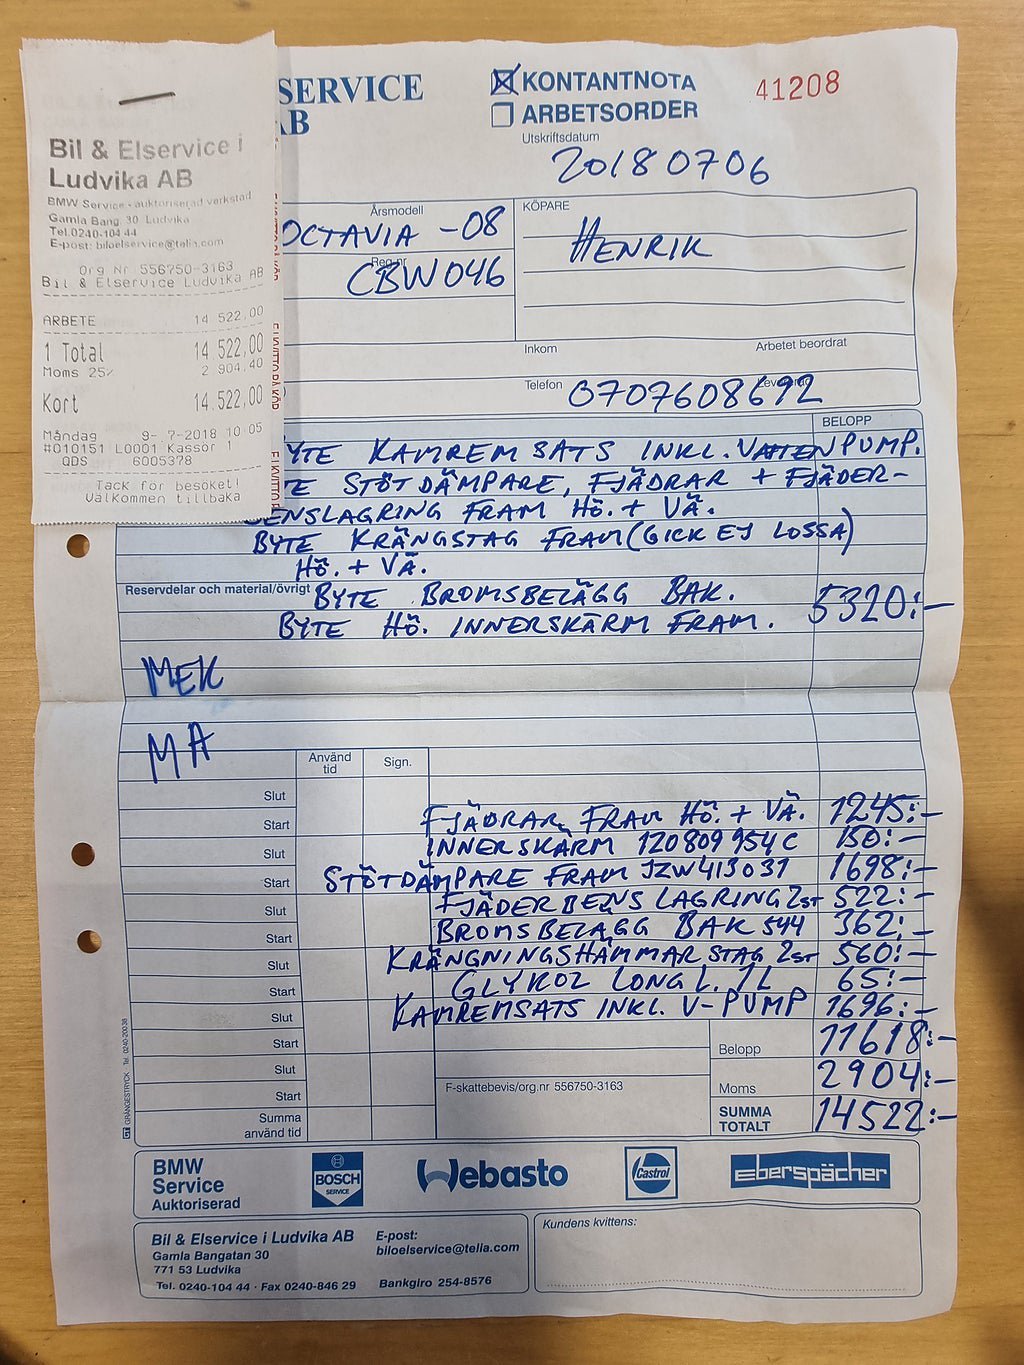 SERVICE
AB
KONTANTNOTA
ARBETSORDER
41208
Utskriftsdatum
20180706
Bil & Elservice i
Ludvika AB
BMW Service - auktoriserad verkstad
Gamla Bang. 30 Ludvika
Tel.0240-104 44
E-post: biloelservice@telia.com
Org Nr 556750-3163
Bil & Elservice Ludvika AB
ARBETE 14 522,00
1 Total 14.522,00
Moms 25% 2 904,40
Kort 14.522,00
Måndag 9- 7-2018 10:05
#010151 L0001 Kassör 1
QDS 6005378
Tack för besöket!
Välkommen tillbaka
Årsmodell
OCTAVIA -08
Reg-nr
CBW046
KÖPARE
HENRIK
Inkom
Arbetet beordrat
Telefon
0707608692
BELOPP
YTE KAMREMSATS INKL. VATTENPUMP.
TE STÖTDÄMPARE, FJÄDRAR + FJÄDER-
BENSLAGRING FRAM HÖ. + VÄ.
BYTE KRÄNGSTAG FRAM (GICK EJ LOSSA)
HÖ. + VÄ.
Reservdelar och material/övrigt
BYTE BROMSBELÄGG BAK. 5320:-
BYTE HÖ. INNERSKÄRM FRAM.
MEK
MA
Använd tid
Sign.
Slut
Start FJÄDRAR FRAM HÖ. + VÄ. 1245:-
Slut INNERSKÄRM 1Z0809954C 150:-
Start STÖTDÄMPARE FRAM JZW413031 1698:-
Slut FJÄDERBENSLAGRING 2st 522:-
Start BROMSBELÄGG BAK 544 362:-
Slut KRÄNGNINGSHÄMMARSTAG 2st 560:-
Start GLYKOL LONG L. 1L 65:-
Slut KAMREMSATS INKL. V-PUMP 1696:-
Start
Belopp 11618:-
Slut
F-skattebevis/org.nr 556750-3163
Moms 2904:-
Start
Summa
använd tid
SUMMA
TOTALT 14522:-
GT GRÄNGESTRYCK Tel. 0240-20038
BMW
Service
Auktoriserad
BOSCH
SERVICE
Webasto
Castrol
Eberspächer
Bil & Elservice i Ludvika AB
Gamla Bangatan 30
771 53 Ludvika
Tel. 0240-104 44 · Fax 0240-846 29
E-post:
biloelservice@telia.com
Bankgiro 254-8576
Kundens kvittens: